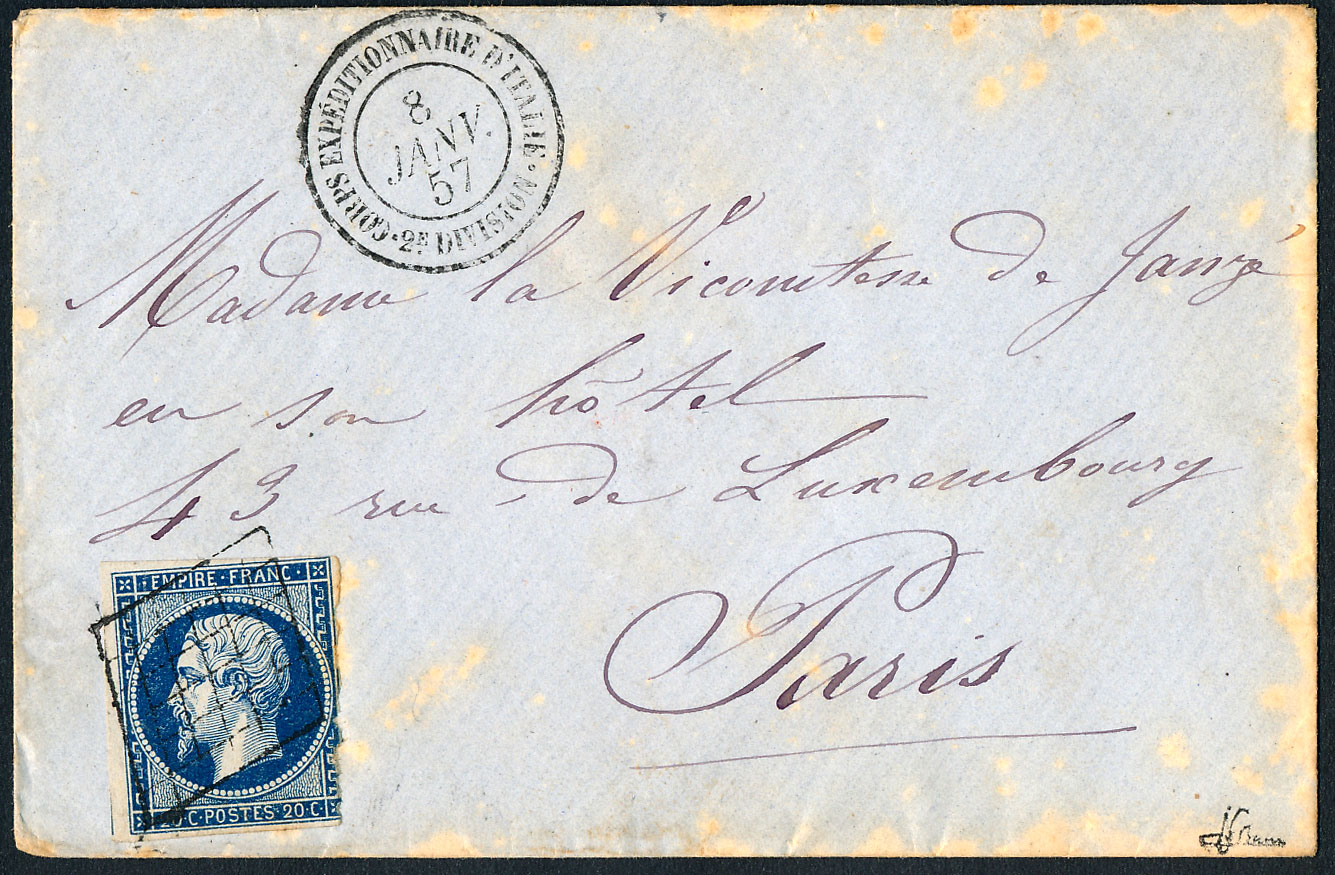 CORPS EXPÉDITIONNAIRE D'ITALIE · 2E DIVISION ·
8
JANV.
57
Madame la Vicomtesse de Janzé
en son hôtel
43 rue de Luxembourg
Paris
· EMPIRE · FRANC ·
20 · C · POSTES · 20 · C ·